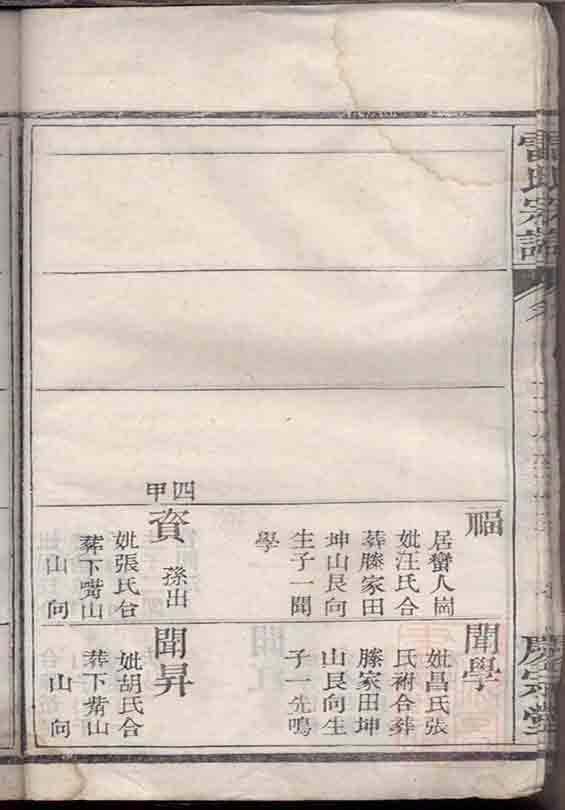 雷氏宗譜
福
居蠻人崗
妣汪氏合
葬滕家田
坤山艮向
生子一聞
學
四甲
資
孫出
妣張氏合
葬下嘴山
山向
聞學
妣昌氏張
氏祔合葬
滕家田坤
山艮向生
子一先鳴
聞昇
妣胡氏合
葬下嘴山
山向